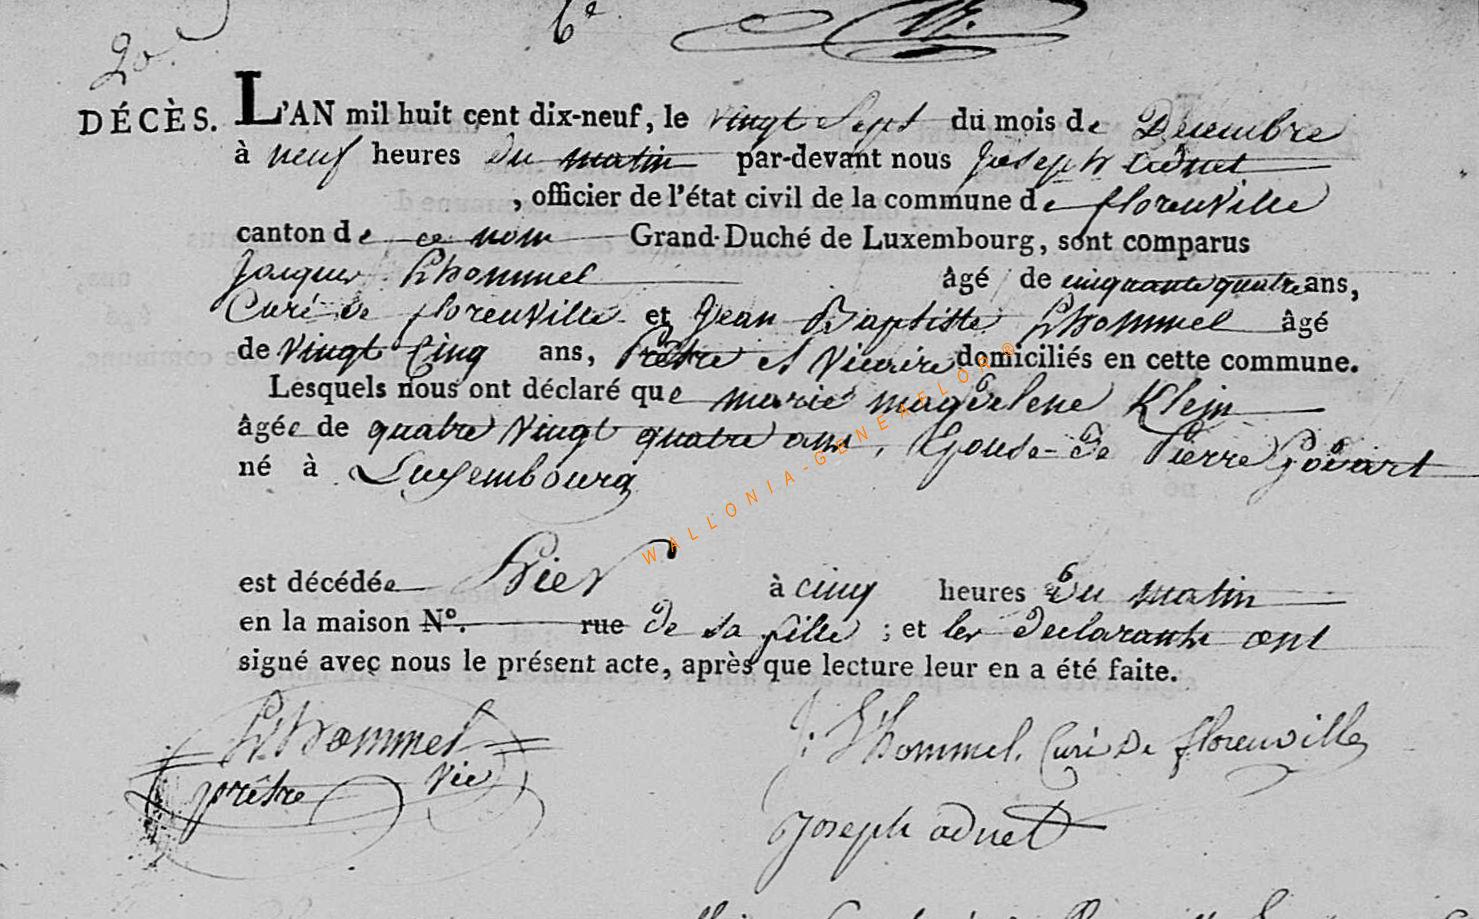 20
6e
DÉCÈS. L'AN mil huit cent dix-neuf, le vingt Sept du mois de Decembre
à neuf heures du matin par-devant nous Joseph adnet
, officier de l'état civil de la commune de florenville
canton de ce nom Grand-Duché de Luxembourg, sont comparus
Jacques Lhommel âgé de cinquante quatre ans,
Curé de florenville et Jean Baptiste Lhommel âgé
de vingt Cinq ans, Prêtre et Vicaire domiciliés en cette commune.
Lesquels nous ont déclaré que marie magdelene Klein
âgée de quatre vingt quatre ans, Epouse de Pierre Govart
né à Luxembourg
est décédée hier à cinq heures du matin
en la maison N°. rue de sa fille ; et les declarants ont
signé avec nous le présent acte, après que lecture leur en a été faite.
Lhommel J: Lhommel. Curé de florenville
prêtre vic
Joseph adnet
WALLONIA-GENEAFLOR ®